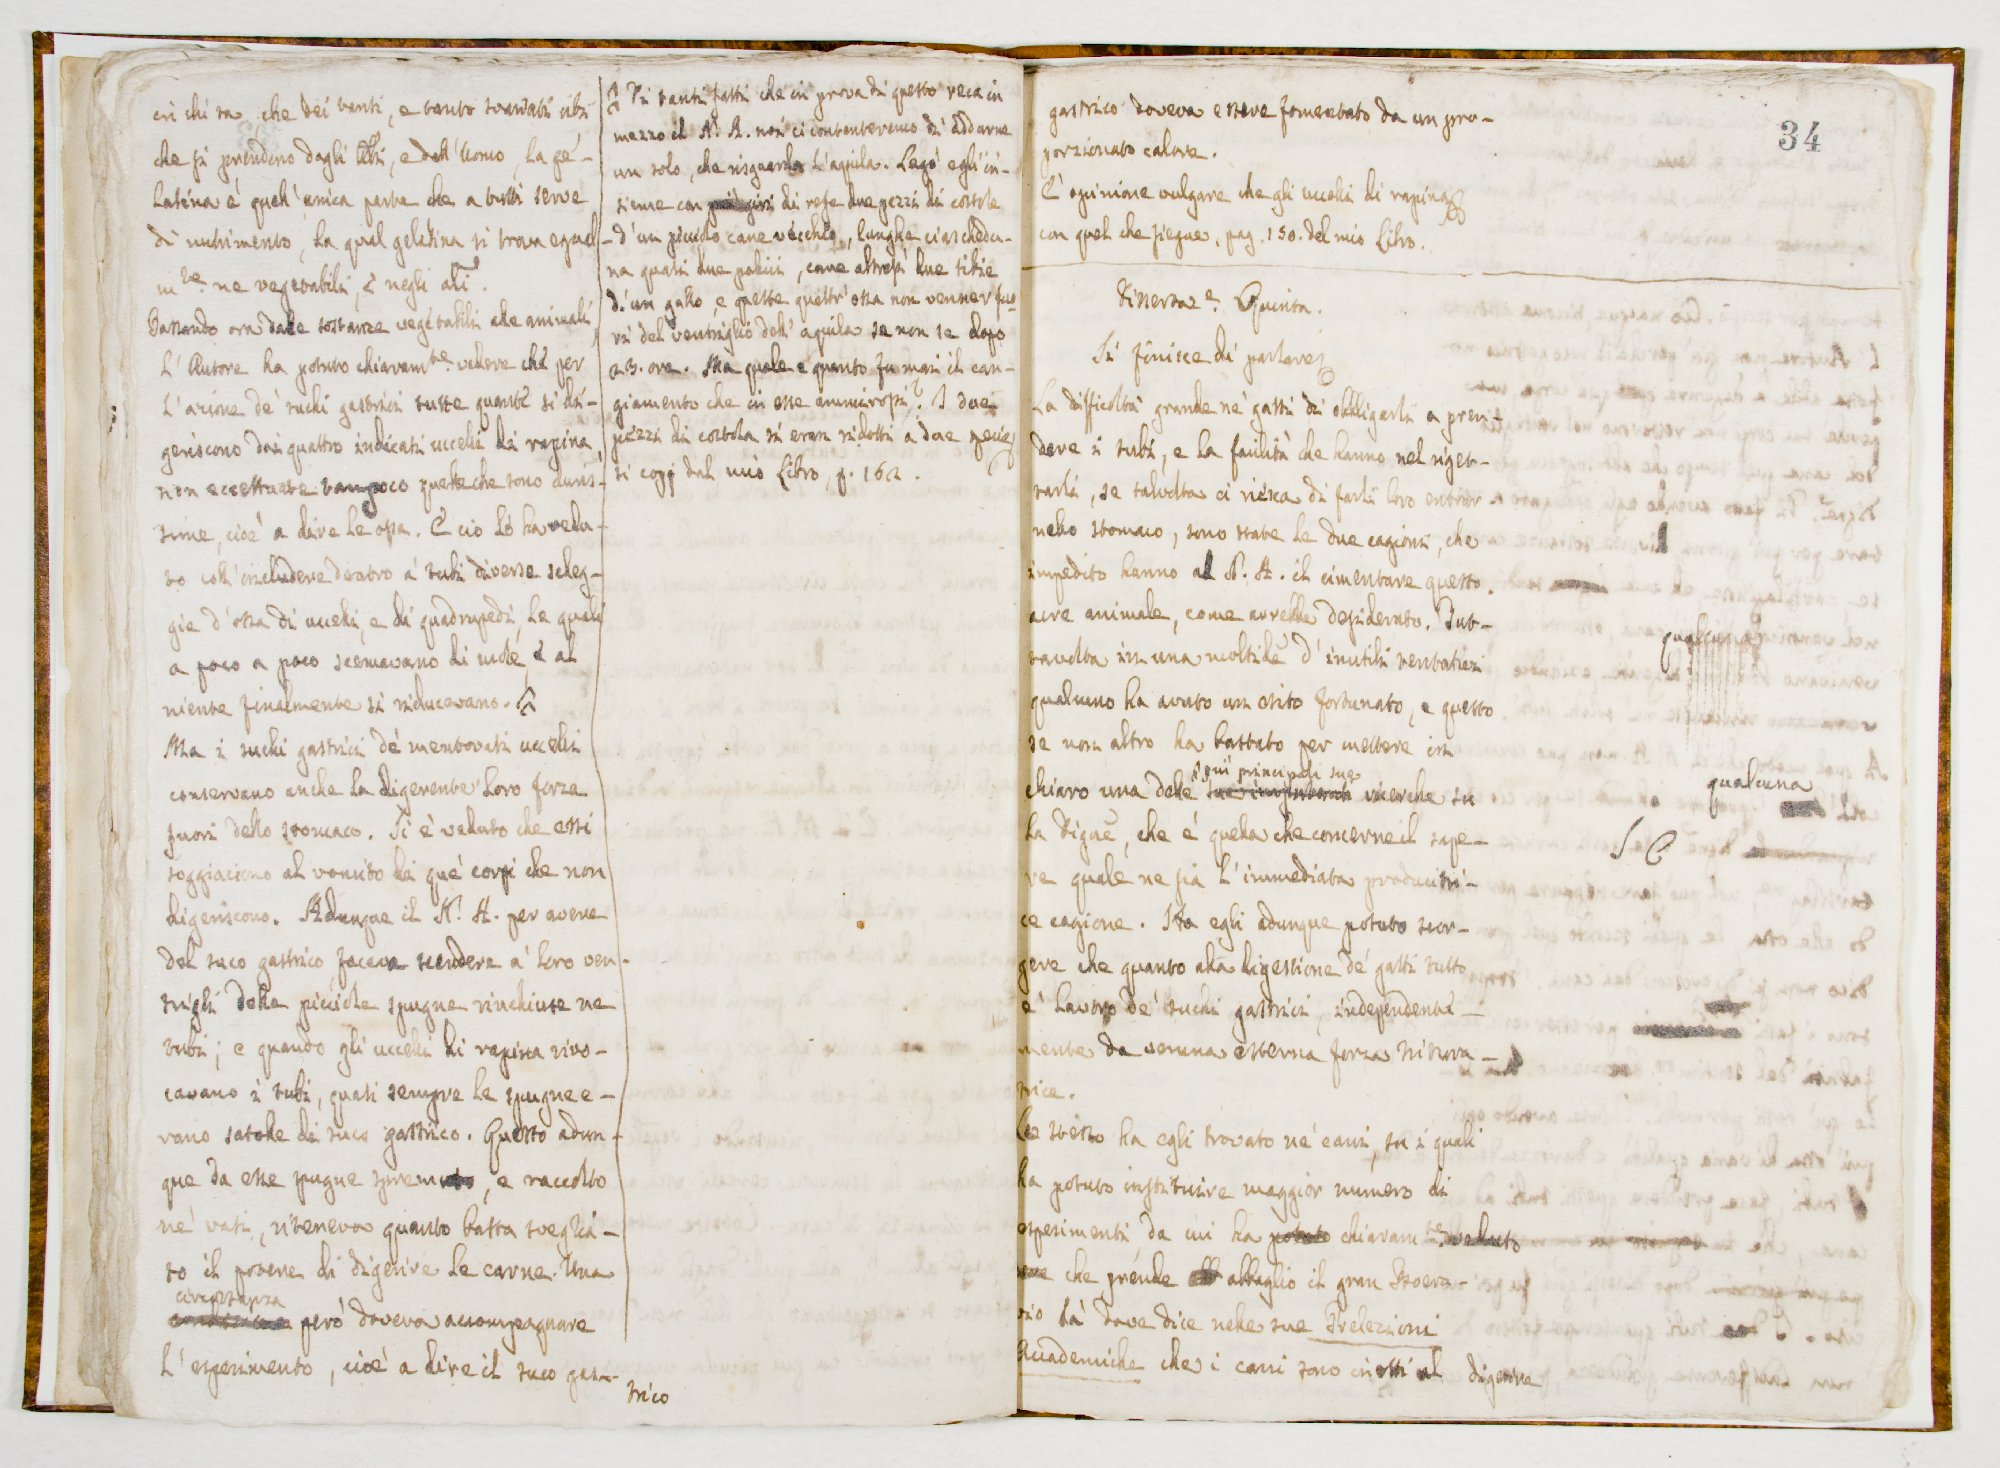 ci chi sa, che dei tanti, e tanto svariati cibi
che si prendono dagli ali, e dall'Uomo, la ge-
latina è quell'unica parte che a tutti serve
di nutrimento, la qual gelatina si trova egual-
mte ne vegetabili, e negli ali.
Passando ora dalle sostanze vegetabili alle animali,
l'Autore ha potuto chiaramte vedere che per
l'azione de' suchi gastrici tutte quante si di-
geriscono dai quattro indicati uccelli di rapina,
non eccettuate tampoco quelle che sono duris-
sime, cioè a dire le ossa. E ciò lo ha vedu-
to coll'includere dentro a' tubi diverse scheg-
gie d'ossa di uccelli, e di quadrupedi, le quali
a poco a poco scemavano di mole, e al
niente finalmente si riducevano.
Ma i suchi gastrici de' mentovati uccelli
conservano anche la digerente loro forza
fuori dello stomaco. Si è veduto che essi
soggiaciono al vomito di que' corpi che non
digeriscono. Adunque il N. A. per avere
del suco gastrico faceva scendere a' loro ven-
trigli delle picciole spugne rinchiuse ne
tubi; e quando gli uccelli di rapina rivo-
cavano i tubi, quasi sempre le spugne e-
rano satolle di suco gastrico. Questo adun-
que da esse spugne spremuto, e raccolto
ne' vasi, riteneva quanto basta sveglia-
to il potere di digerire le carne. Una
circostanza
però doveva accompagnare
l'esperimento, cioè a dire il suco gas-
trico
Di tanti fatti che in prova di questo reca in
mezzo il N. A. noi ci contenteremo di addurne
un solo, che risguarda l'aquila. Legò egli in-
sieme con più giri di refe due pezzi di costole
d'un picciolo cane vecchio, lunghe ciaschedu-
na quasi due pollici, come altresì due tibie
d'un gallo, e queste quattr'ossa non venner fuo-
ri del ventriglio dell'aquila se non se dopo
23. ore. Ma quale e quanto fu mai il can-
giamento che in esse ammirossi? I due
pezzi di costola si eran ridotti a due
si copj dal mio Libro, p. 162.
34
gastrico doveva essere fomentato da un pro-
porzionato calore.
È opinione vulgare che gli uccelli di rapina
con quel che siegue, pag. 150. del mio Libro.
Dissertaze. Quinta.
Si finisce di parlare
La difficoltà grande ne' gatti di obbligarli a pren-
dere i tubi, e la facilità che hanno nel riget-
tarli, se talvolta ci riesca di farli loro entrar
nello stomaco, sono state le due cagioni, che
impedito hanno al N. A. il cimentare questo
acre animale, come avrebbe desiderato. Tut-
tavolta in una moltidē d'inutili tentativi
qualcuno ha avuto un esito fortunato, e questo
se non altro ha bastato per mettere in
più principali sue
chiaro una delle sue importanti ricerche su
la Digne, che è quella che concerne il sape-
re quale ne sia l'immediata producitri-
ce cagione. Ha egli adunque potuto scor-
gere che quanto alla digestione de' gatti tutto
è lavoro de' suchi gastrici, independente-
mente da veruna esterna forza tritura-
trice.
Lo stesso ha egli trovato ne' cani, su i quali
ha potuto instituire maggior numero di
esperimenti, da cui ha potuto chiaramte. veduto
che prende abbaglio il gran Boera-
vio là dove dice nelle sue Prelezioni
Accademiche che i cani sono inetti al digerire
qualcuna
qualcuna